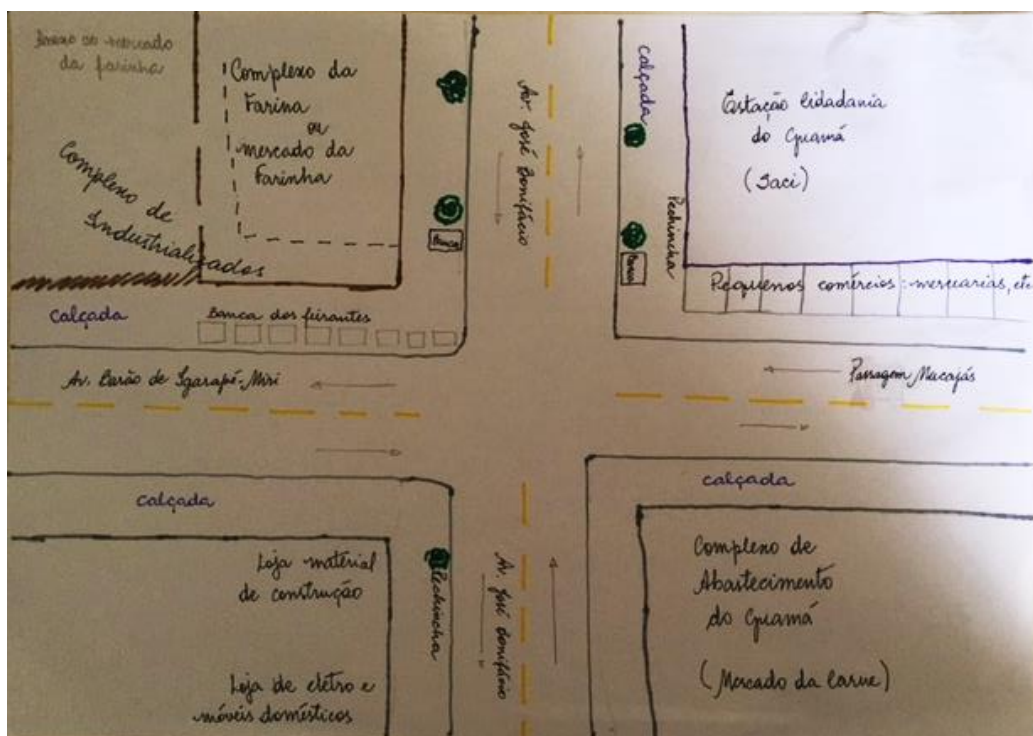 Anexo ao mercado
da farinha
Complexo da
Farina
ou
mercado da
Farinha
Complexo de
Industrializados
Banca
Calçada
Banca dos feirantes
Av. José Bonifácio
Calçada
Pechincha
Banca
Estação Cidadania
do Guamá
(Saci)
Pequenos comércios: mercearias, etc
Av. Barão de Igarapé-Miri
Passagem Mucajás
Calçada
Calçada
Loja material
de construção
Loja de eletro e
móveis domésticos
Pechincha
Av. José Bonifácio
Complexo de
Abastecimento
do Guamá
(Mercado da Carne)